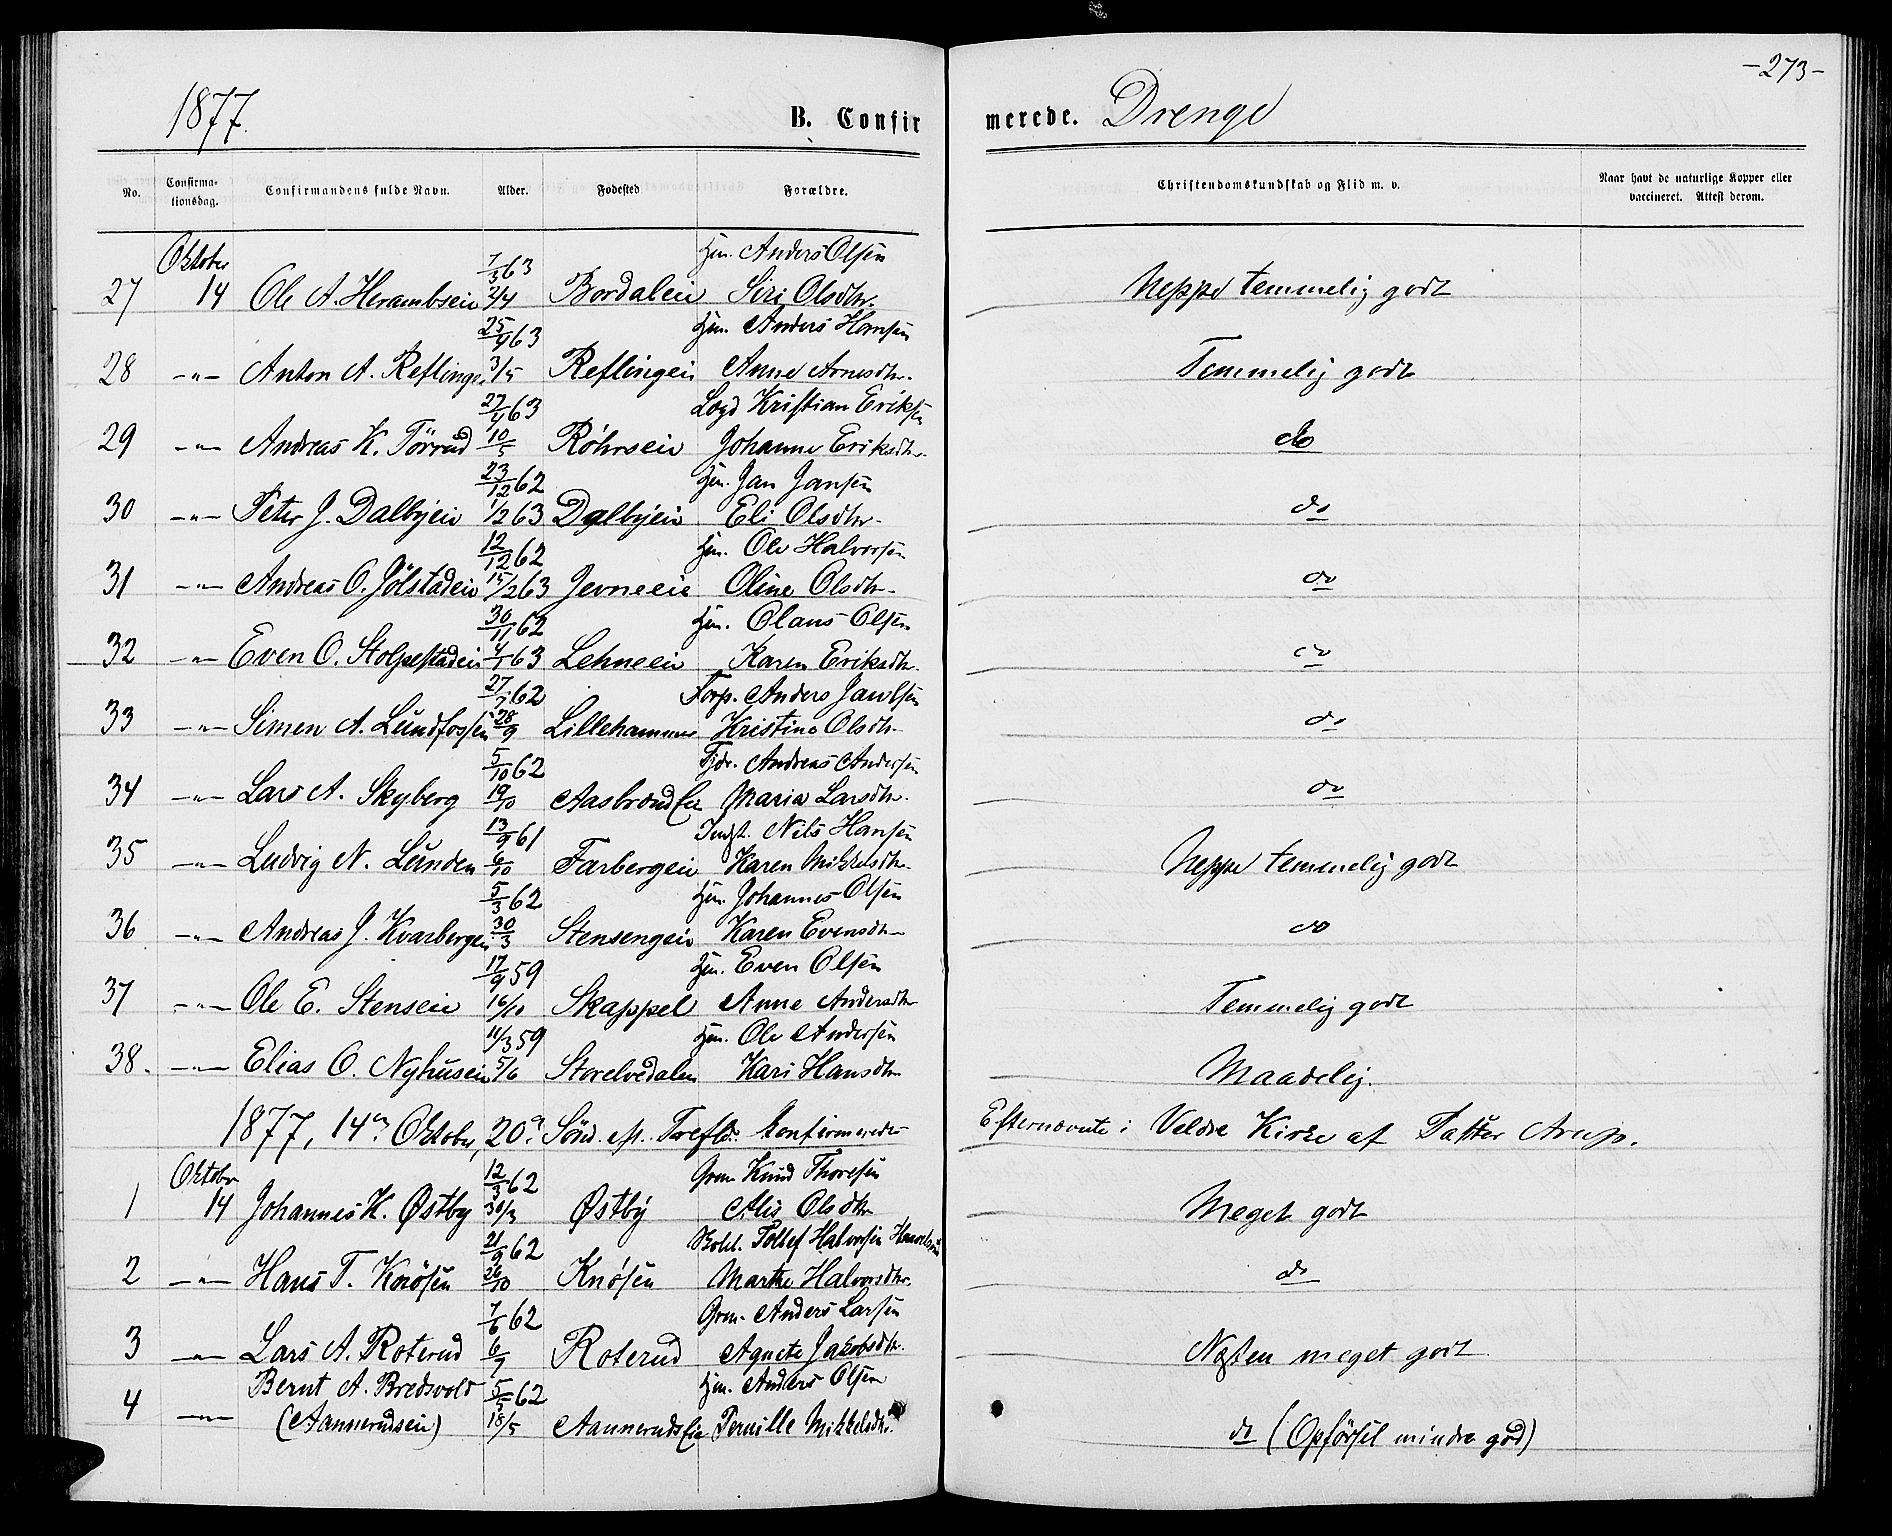 -273-
1877. B. Confirmerede. Drenge
No. Confirmationsdag. Confirmandens fulde Navn. Alder. Fødested Forældre. Christendomskundskab og Flid m. v. Naar havt de naturlige Kopper eller vaccineret. Attest derom.
Oktober 7/3 63 Hm. Anders Olsen
27 14 Ole A. Herambseie 2/4 Bordaleie Siri Olsdtr. Neppe temmelig godt
25/4 63 Hm. Anders Hansen
28 -"- Anton A. Reflinge 3/5 Reflingeie Anne Arnesdtr. Temmelig godt
27/4 63 Logd Kristian Eriksen
29 -"- Andreas K. Törrud 10/5 Röhrseie Johanne Eriksdtr. do
23/12 62 Hm. Jan Jansen
30 -"- Peter J. Dalbyeie 1/2 63 Dalbyeie Eli Olsdtr. do
12/12 62 Hm. Ole Halvorsen
31 -"- Andreas O. Jölstadeie 15/2 63 Jevneeie Oline Olsdtr. do
30/11 62 Hm. Olaus Olsen
32 -"- Even O. Stolpestadeie 4/1 63 Lehneeie Karen Eriksdtr. do
27/7 62 Forp. Anders Jacobsen
33 -"- Simen A. Lundfossen 28/9 Lillehammer Kristine Olsdtr. do
5/10 62 Fjdr. Andreas Andersen
34 -"- Lars A. Skyberg 19/10 Aasbrendseie Maria Larsdtr. do
13/9 61 Indst. Nils Hansen
35 -"- Ludvig N. Lunden 6/10 Farbergeie Karen Mikkelsdtr. Neppe temmelig godt
5/3 62 Hm. Johannes Olsen
36 -"- Andreas J. Kvarbergeie 30/3 Stensengeie Karen Evensdtr. do
17/9 59 Hm. Even Olsen
37 -"- Ole E. Stenseie 16/10 Skappel Anne Andersdtr Temmelig godt
11/3 59 Hm. Ole Andersen
38. -"- Elias O. Nyhuseie 5/6 Storelvedalen Kari Hansdtr Maadelig.
1877, 14de Oktober, 20de Sönd. eft. Trefld. konfirmeredes Efternævnte i Veldre Kirke af Pastor Arup.
Oktober 12/3 62 Grm Knud Thoresen
1 14 Johannes K. Østby 30/3 Østby Alis Olsdtr Meget godt
21/9 62 Tollef Halvorsen
2 -"- Hans T. Knösen 26/10 Knösen Marthe Halvorsdtr. do
7/6 62 Grm. Anders Larsen
3 -"- Lars A. Roterud 6/7 Roterud Agnete Jakobsdtr. Næsten meget godt
Bernt A. Bredvold 5/5 62 Hm. Anders Olsen
4 -"- (Aannerudseie) 18/5 Aannerudseie Pernille Mikkelsdtr. do (Opförsel mindre god)